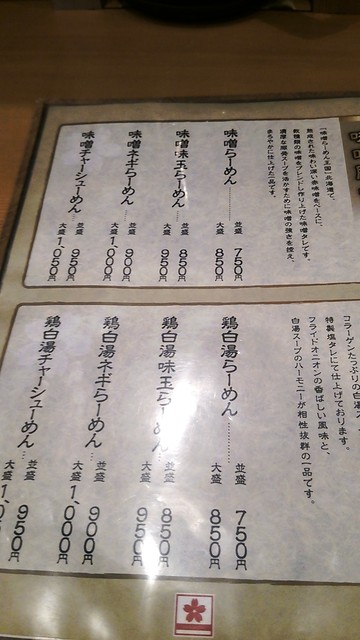 「味噌らーめん王国」北海道で、
熟成された味わい深い赤味噌をベースに、
数種類の味噌をブレンドし作り上げた味噌タレです。
濃厚な鶏発スープを活かすために味噌の強さを控え、
まろやかに仕上げた一品です。
味噌らーめん 並盛 750円
大盛 850円
味噌味玉らーめん 並盛 850円
大盛 950円
味噌ネギらーめん 並盛 900円
大盛 1,000円
味噌チャーシューめん 並盛 950円
大盛 1,050円
コラーゲンたっぷりの白湯ス
特製塩タレにて仕上げております。
フライドオニオンの香ばしい風味と、
白湯スープのハーモニーが相性抜群の一品です。
鶏白湯らーめん 並盛 750円
大盛 850円
鶏白湯味玉らーめん 並盛 850円
大盛 950円
鶏白湯ネギらーめん 並盛 900円
大盛 1,000円
鶏白湯チャーシューめん 並盛 950円
大盛 1,0